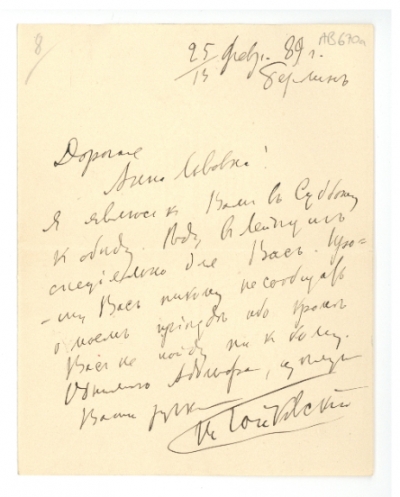 8
АВ670а
25/13 февр. 89 г.
Берлинъ
Дорогая
Анна Львовна!
Я явлюсь къ Вамъ въ Субботу
къ обѣду. Ѣду въ Лейпцигъ
спеціально для Васъ. Про-
-шу Васъ никому не сообщать
о моемъ пріѣздѣ ибо кромѣ
Васъ не пойду ни къ кому.
Обнимаю Адольфа, цѣлую
Ваши ручки
П. Чайковскій